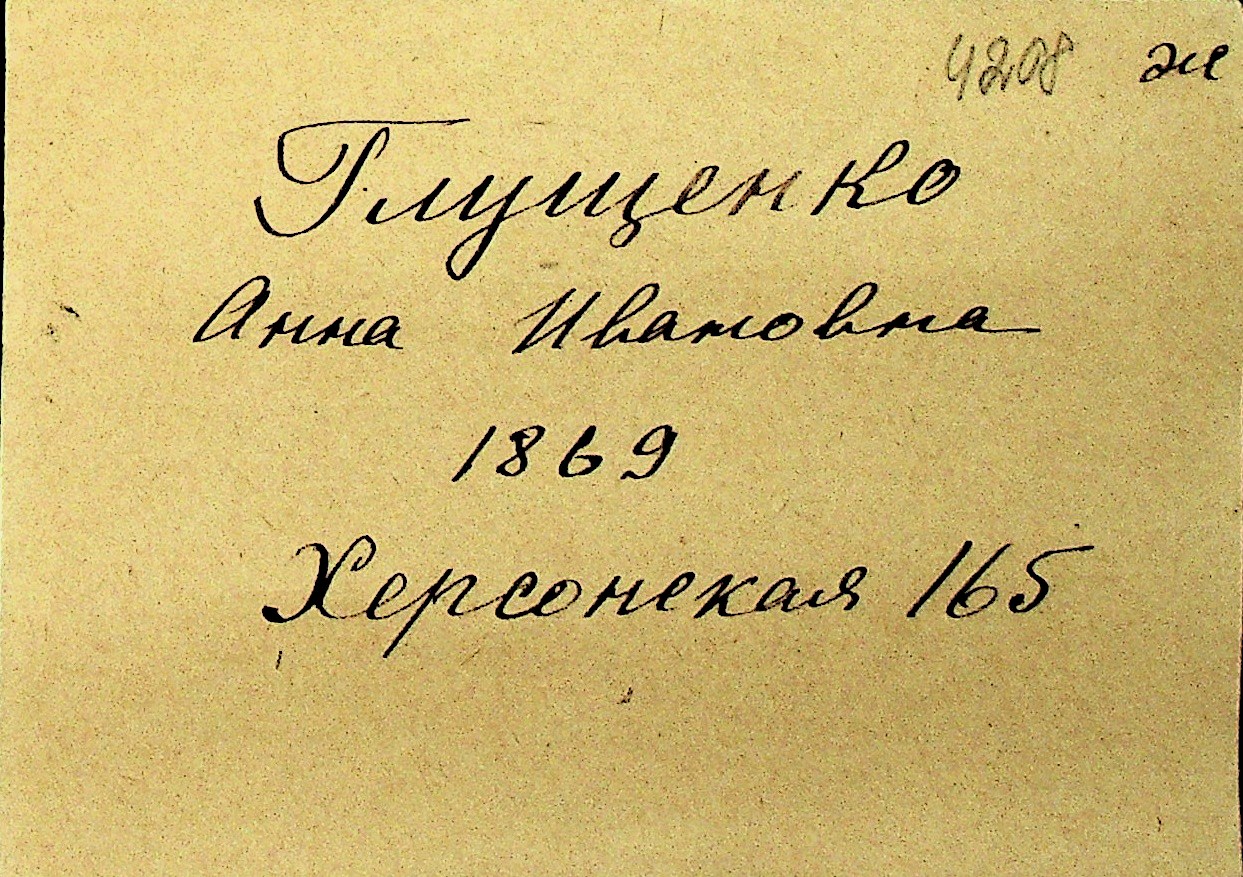 4208 ж
Глущенко
Анна Ивановна
1869
Херсонская 165